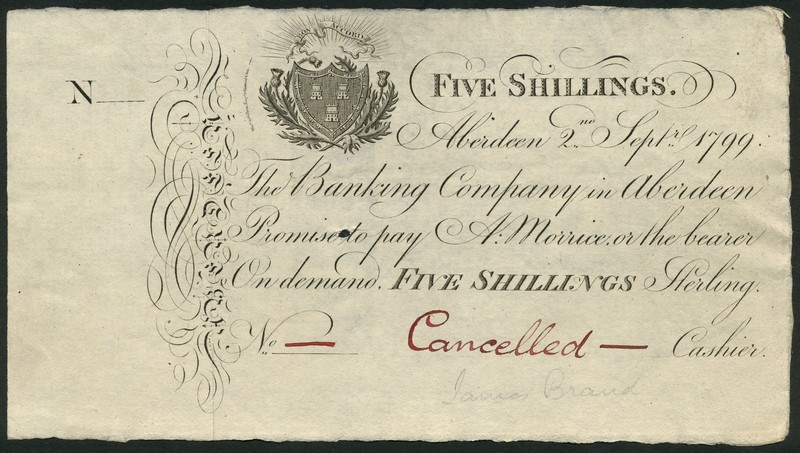 BON ACCORD
N
FIVE SHILLINGS.
Aberdeen 2.no Septr. 1799.
The Banking Company in Aberdeen
Promise to pay A: Morrice, or the bearer
On demand, FIVE SHILLINGS Sterling.
No — Cancelled — Cashier.
James Brand